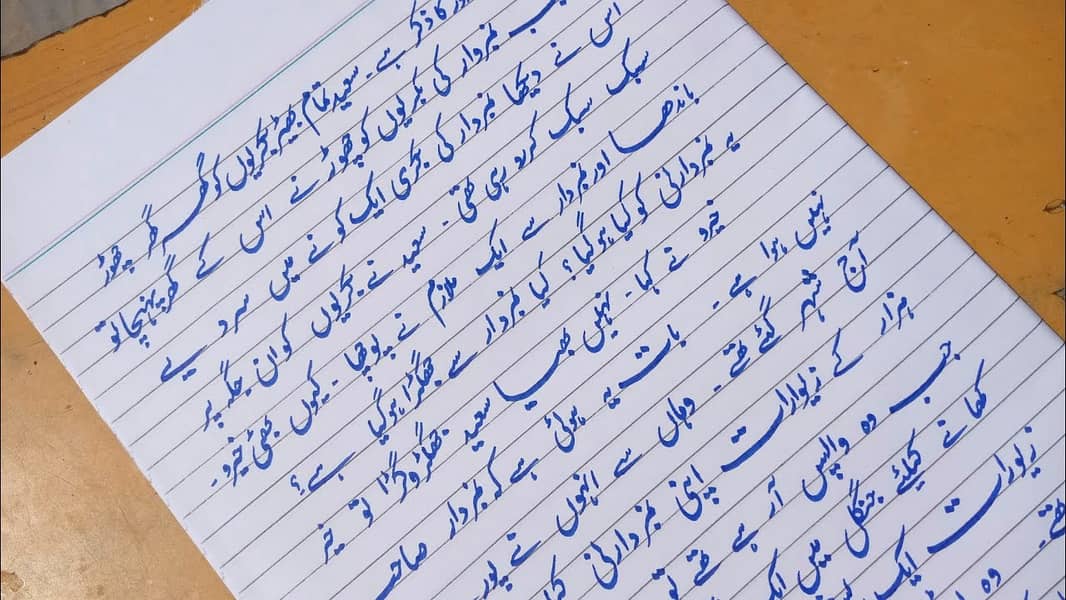 کا ذکر ہے۔ سعید تمام بھیڑ بکریوں کو گھر گھر چھوڑ
نمبردار کی بکریوں کو چھوڑنے اس کے گھر پہنچا تو
اس نے دیکھا نمبردار کی بکری ایک کونے میں سر دیے
سبک سبک کر رو رہی تھی۔ سعید نے بکریوں کو ان جگہ پر
باندھا اور نمبردار سے ایک ملازم نے پوچھا۔ کیوں بھئی خیرو۔
یہ نمبردارنی کو کیا ہو گیا؟ کیا نمبردار سے جھگڑا ہو گیا ہے؟
خیرو نے کہا۔ نہیں بھیا سعید جھگڑوگڑا تو خیر
نہیں ہوا ہے۔ بات یہ ہوئی ہے کہ نمبردار صاحب
آج شہر گئے تھے۔ وہاں سے انہوں نے
ہزار کے زیوارات اپنی نمبردارنی
جب وہ واپس آ رہے تھے تو
کھانے کیلئے جنگل میں ایک
زیورات ایک
تھے۔ وہ